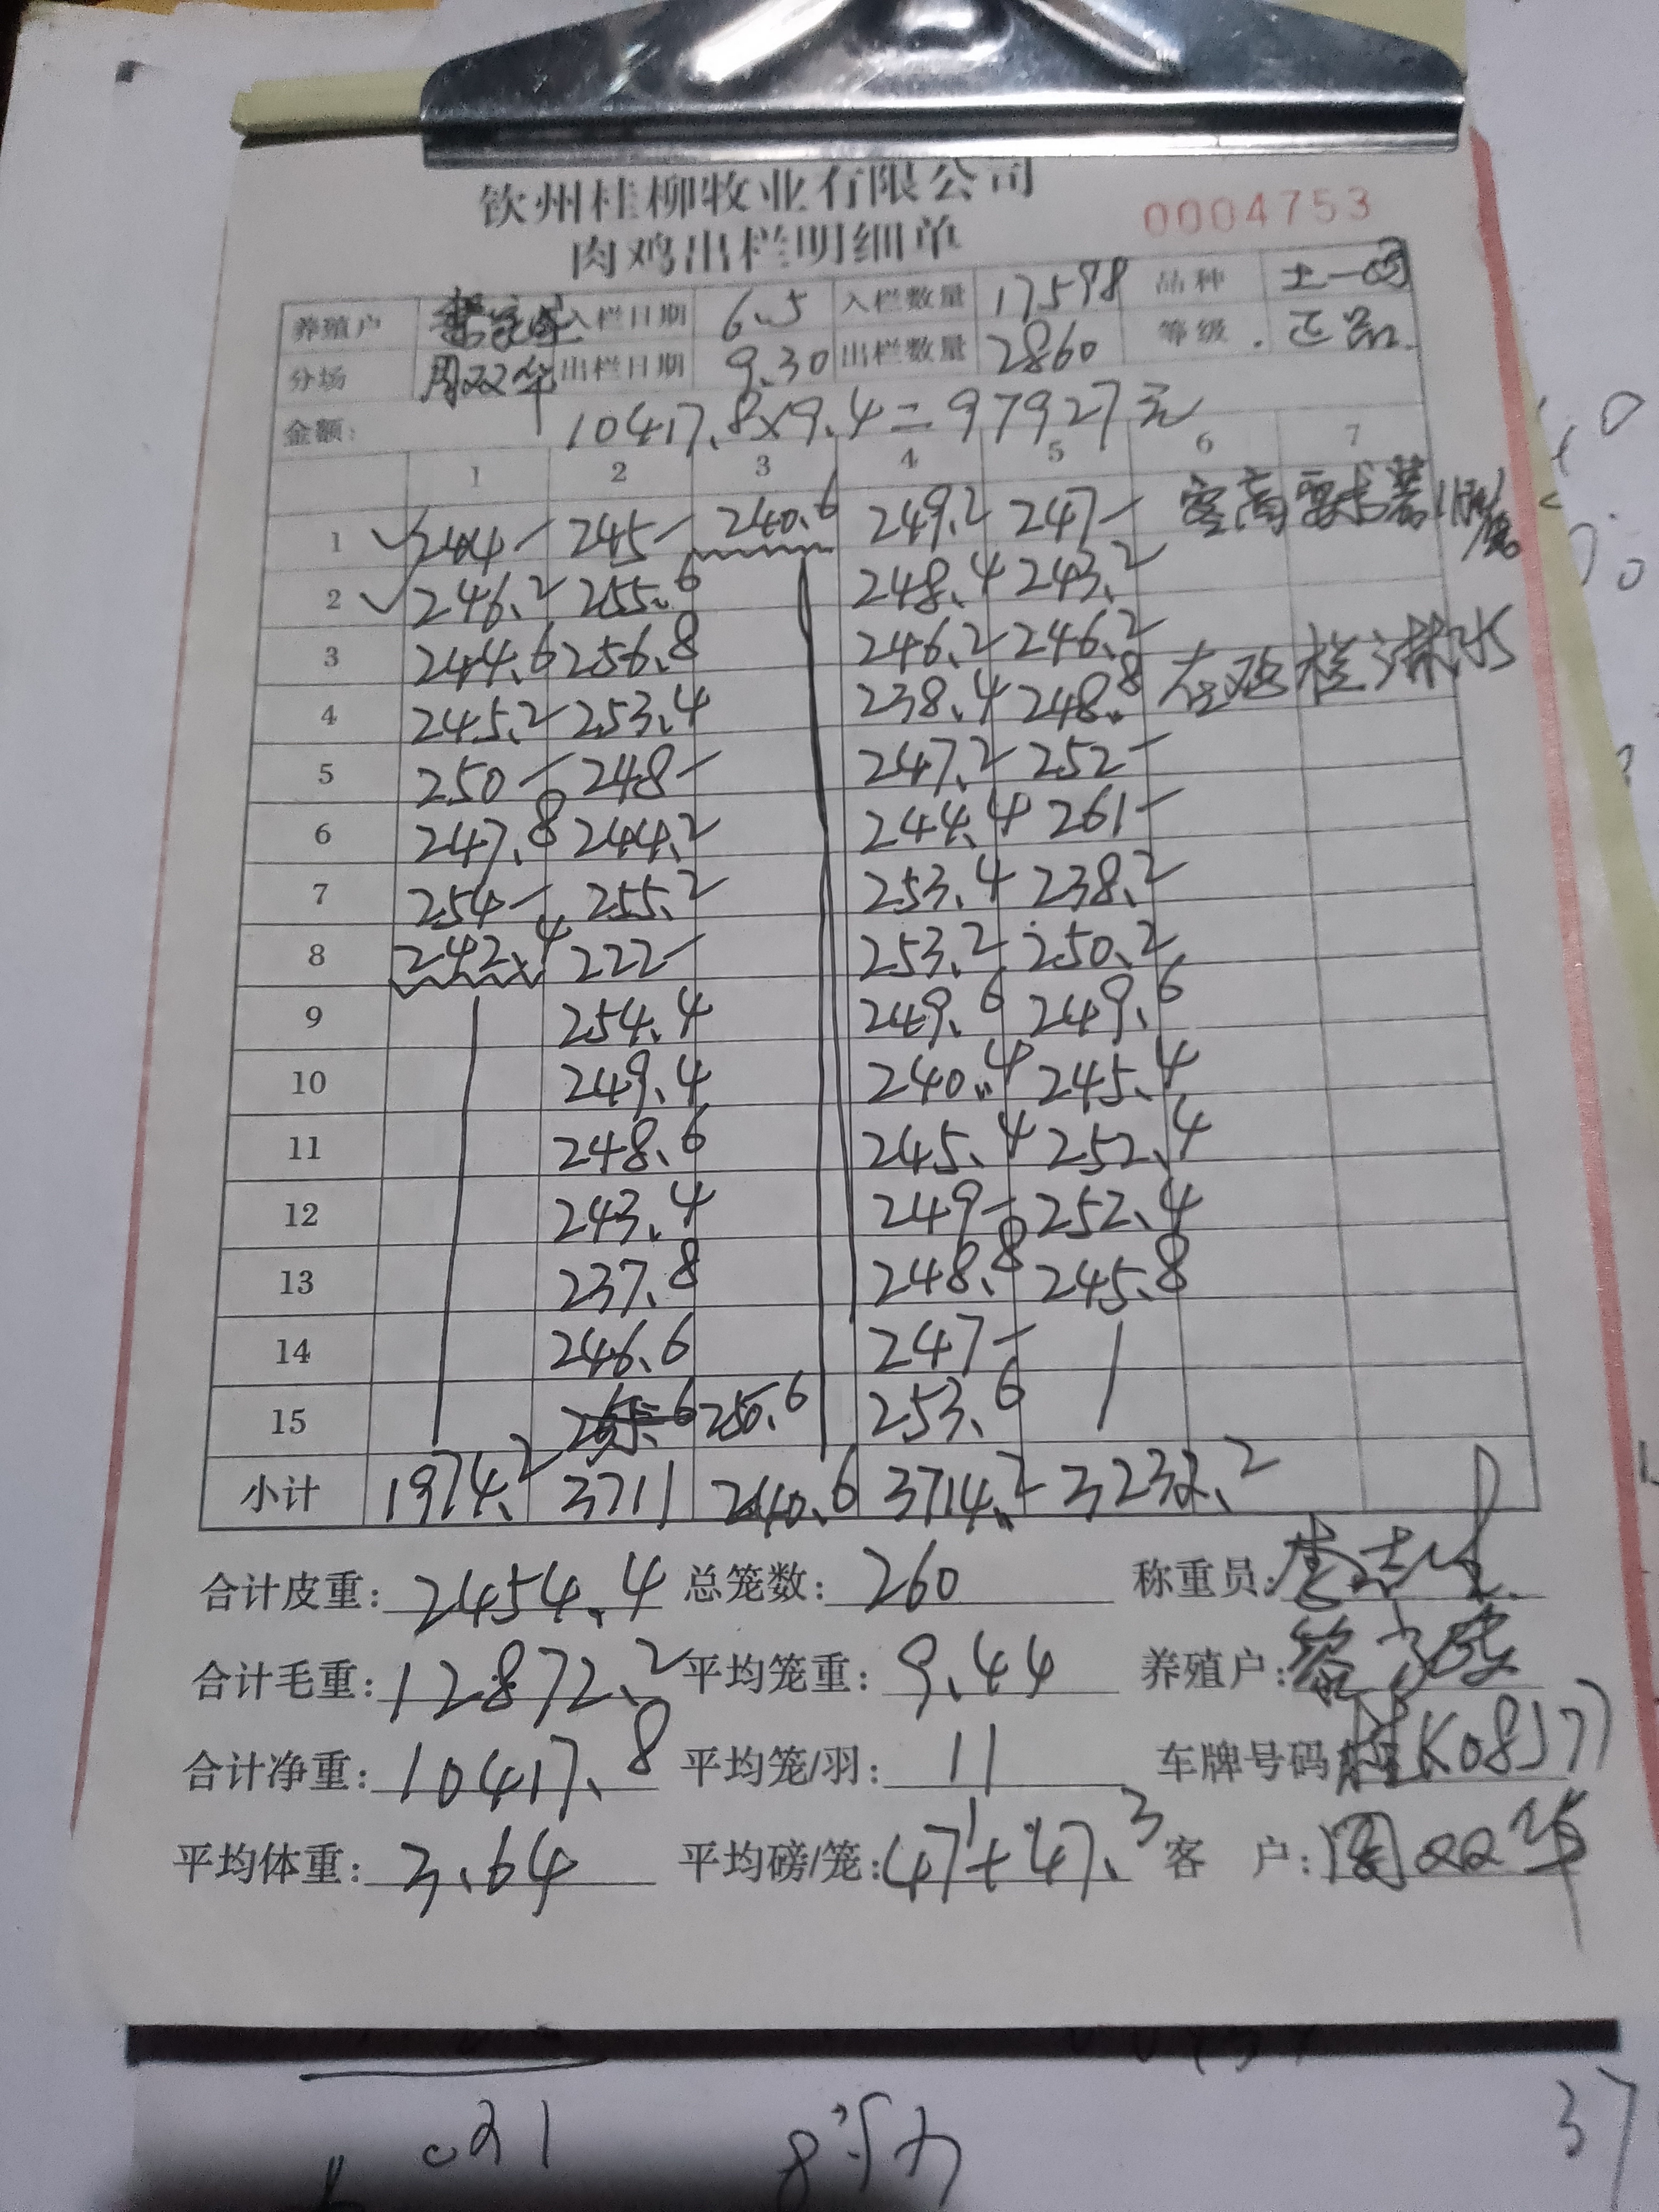 钦州桂柳牧业有限公司
肉鸡出栏明细单 0004753
养殖户 入栏日期 6.5 入栏数量 17598 品种 土一
分场 周双华 出栏日期 9.30 出栏数量 2860 等级 正品
金额: 10417.8×9.4=97927元
1 2 3 4 5 6 7
1 244- 245- 240.6 249.2 247- 客商要求
2 246.2 255.6 248.4 243.2
3 244.6 256.8 246.2 246.2
4 245.2 253.4 238.4 248.8 在鸡栏淋水
5 250- 248- 247.2 252-
6 247.8 244.2 244.4 261-
7 254- 255.2 253.4 238.2
8 242.4 222- 253.2 250.2
9 254.4 249.6 249.6
10 249.4 240.4 245.4
11 248.6 245.4 252.4
12 243.4 249- 252.4
13 237.8 248.8 245.8
14 246.6 247-
15 250.6 253.6
小计 1974.2 3711 240.6 3714.2 3232.2
合计皮重: 2454.4 总笼数: 260 称重员:
合计毛重: 12872.2 平均笼重: 9.44 养殖户:
合计净重: 10417.8 平均笼/羽: 11 车牌号码 桂K08J77
平均体重: 3.64 平均磅/笼: 47+47.3 客 户: 周双华
021
37